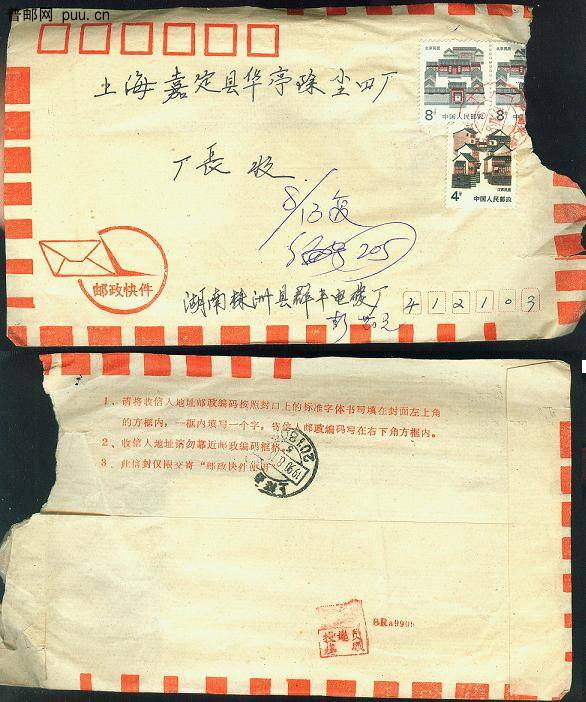 普邮网 puu.cn
上海嘉定县华亭除尘口厂
厂長 收
8/13复
编号205
湖南株洲县群丰电瓷厂
彭
412103
邮政快件
北京民居
8分
中国人民邮政
8分
中国人民邮
江西民居
4分
中国人民邮政
1、请将收信人地址邮政编码按照封口上的标准字体书写填在封面左上角
的方框内，一框内填写一个字，寄信人邮政编码写在右下角方框内。
2、收信人地址请勿靠近邮政编码框格。
3、此信封仅限交寄“邮政快件使用
1990
上海
2018
BRa9909